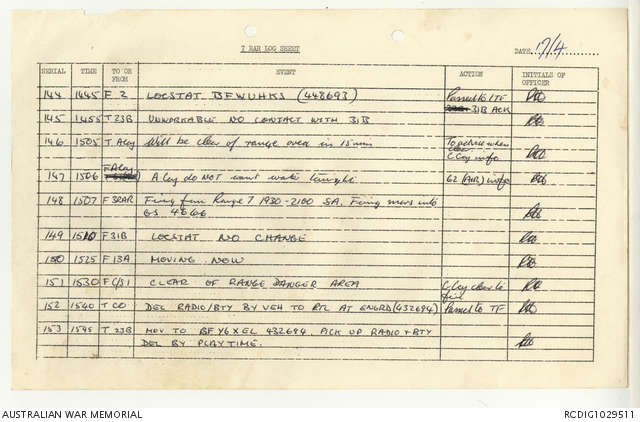 7 RAR LOG SHEET
DATE 17/4
SERIAL TIME TO OR FROM EVENT ACTION INITIALS OF OFFICER
144 1445 F 2 LOCSTAT BFWUHKS (448693) Passed to 1TF
31B ACK
145 1455 T 23B UNWORKABLE NO CONTACT WITH 31B
146 1505 T A Coy Will be clear of range area in 15 min To advise when clear
C Coy info
147 1506 F A Coy A Coy do NOT want water tonight G2 (AIR) info
148 1507 F 3RAR Firing from Range 7 1930-2100 SA. Firing mors into
GS 4666
149 1510 F 31B LOCSTAT NO CHANGE
150 1525 F 13A MOVING NOW
151 1530 F C/S1 CLEAR OF RANGE DANGER AREA C Coy clear to
fire
152 1540 T CO DEL RADIO/BTY BY VEH TO RTL AT ENGRD (432694) Passed to TF
153 1545 T 23B MOV TO BFY6XEL 432694. PICK UP RADIO + BTY
DEL BY PLAYTIME.
AUSTRALIAN WAR MEMORIAL
RCDIG1029511